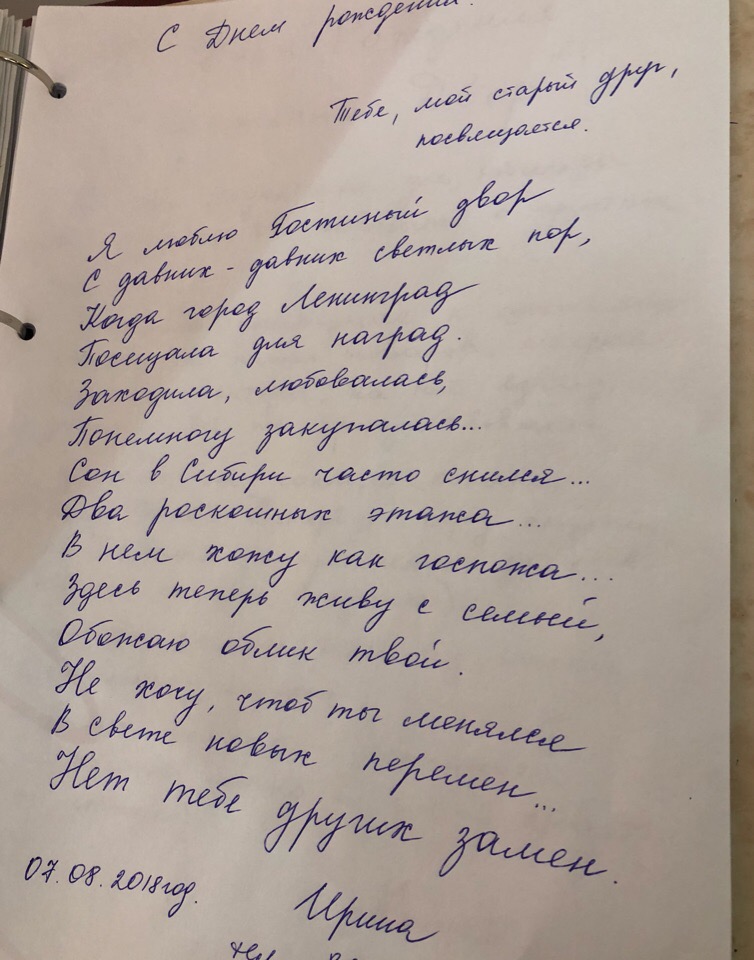 С Днем рождения.
Тебе, мой старый друг,
посвящается.
Я люблю Гостиный двор
С давних - давних светлых пор,
Когда город Ленинград
Посещала для наград.
Заходила, любовалась,
Понемногу закупалась...
Сон в Сибири часто снился...
Два роскошных этажа...
В нем хожу как госпожа...
Здесь теперь живу с семьёй,
Обожаю облик твой.
Не хочу, чтоб ты менялся
В свете новых перемен...
Нет тебе других замен.
07.08.2018год.
Ирина